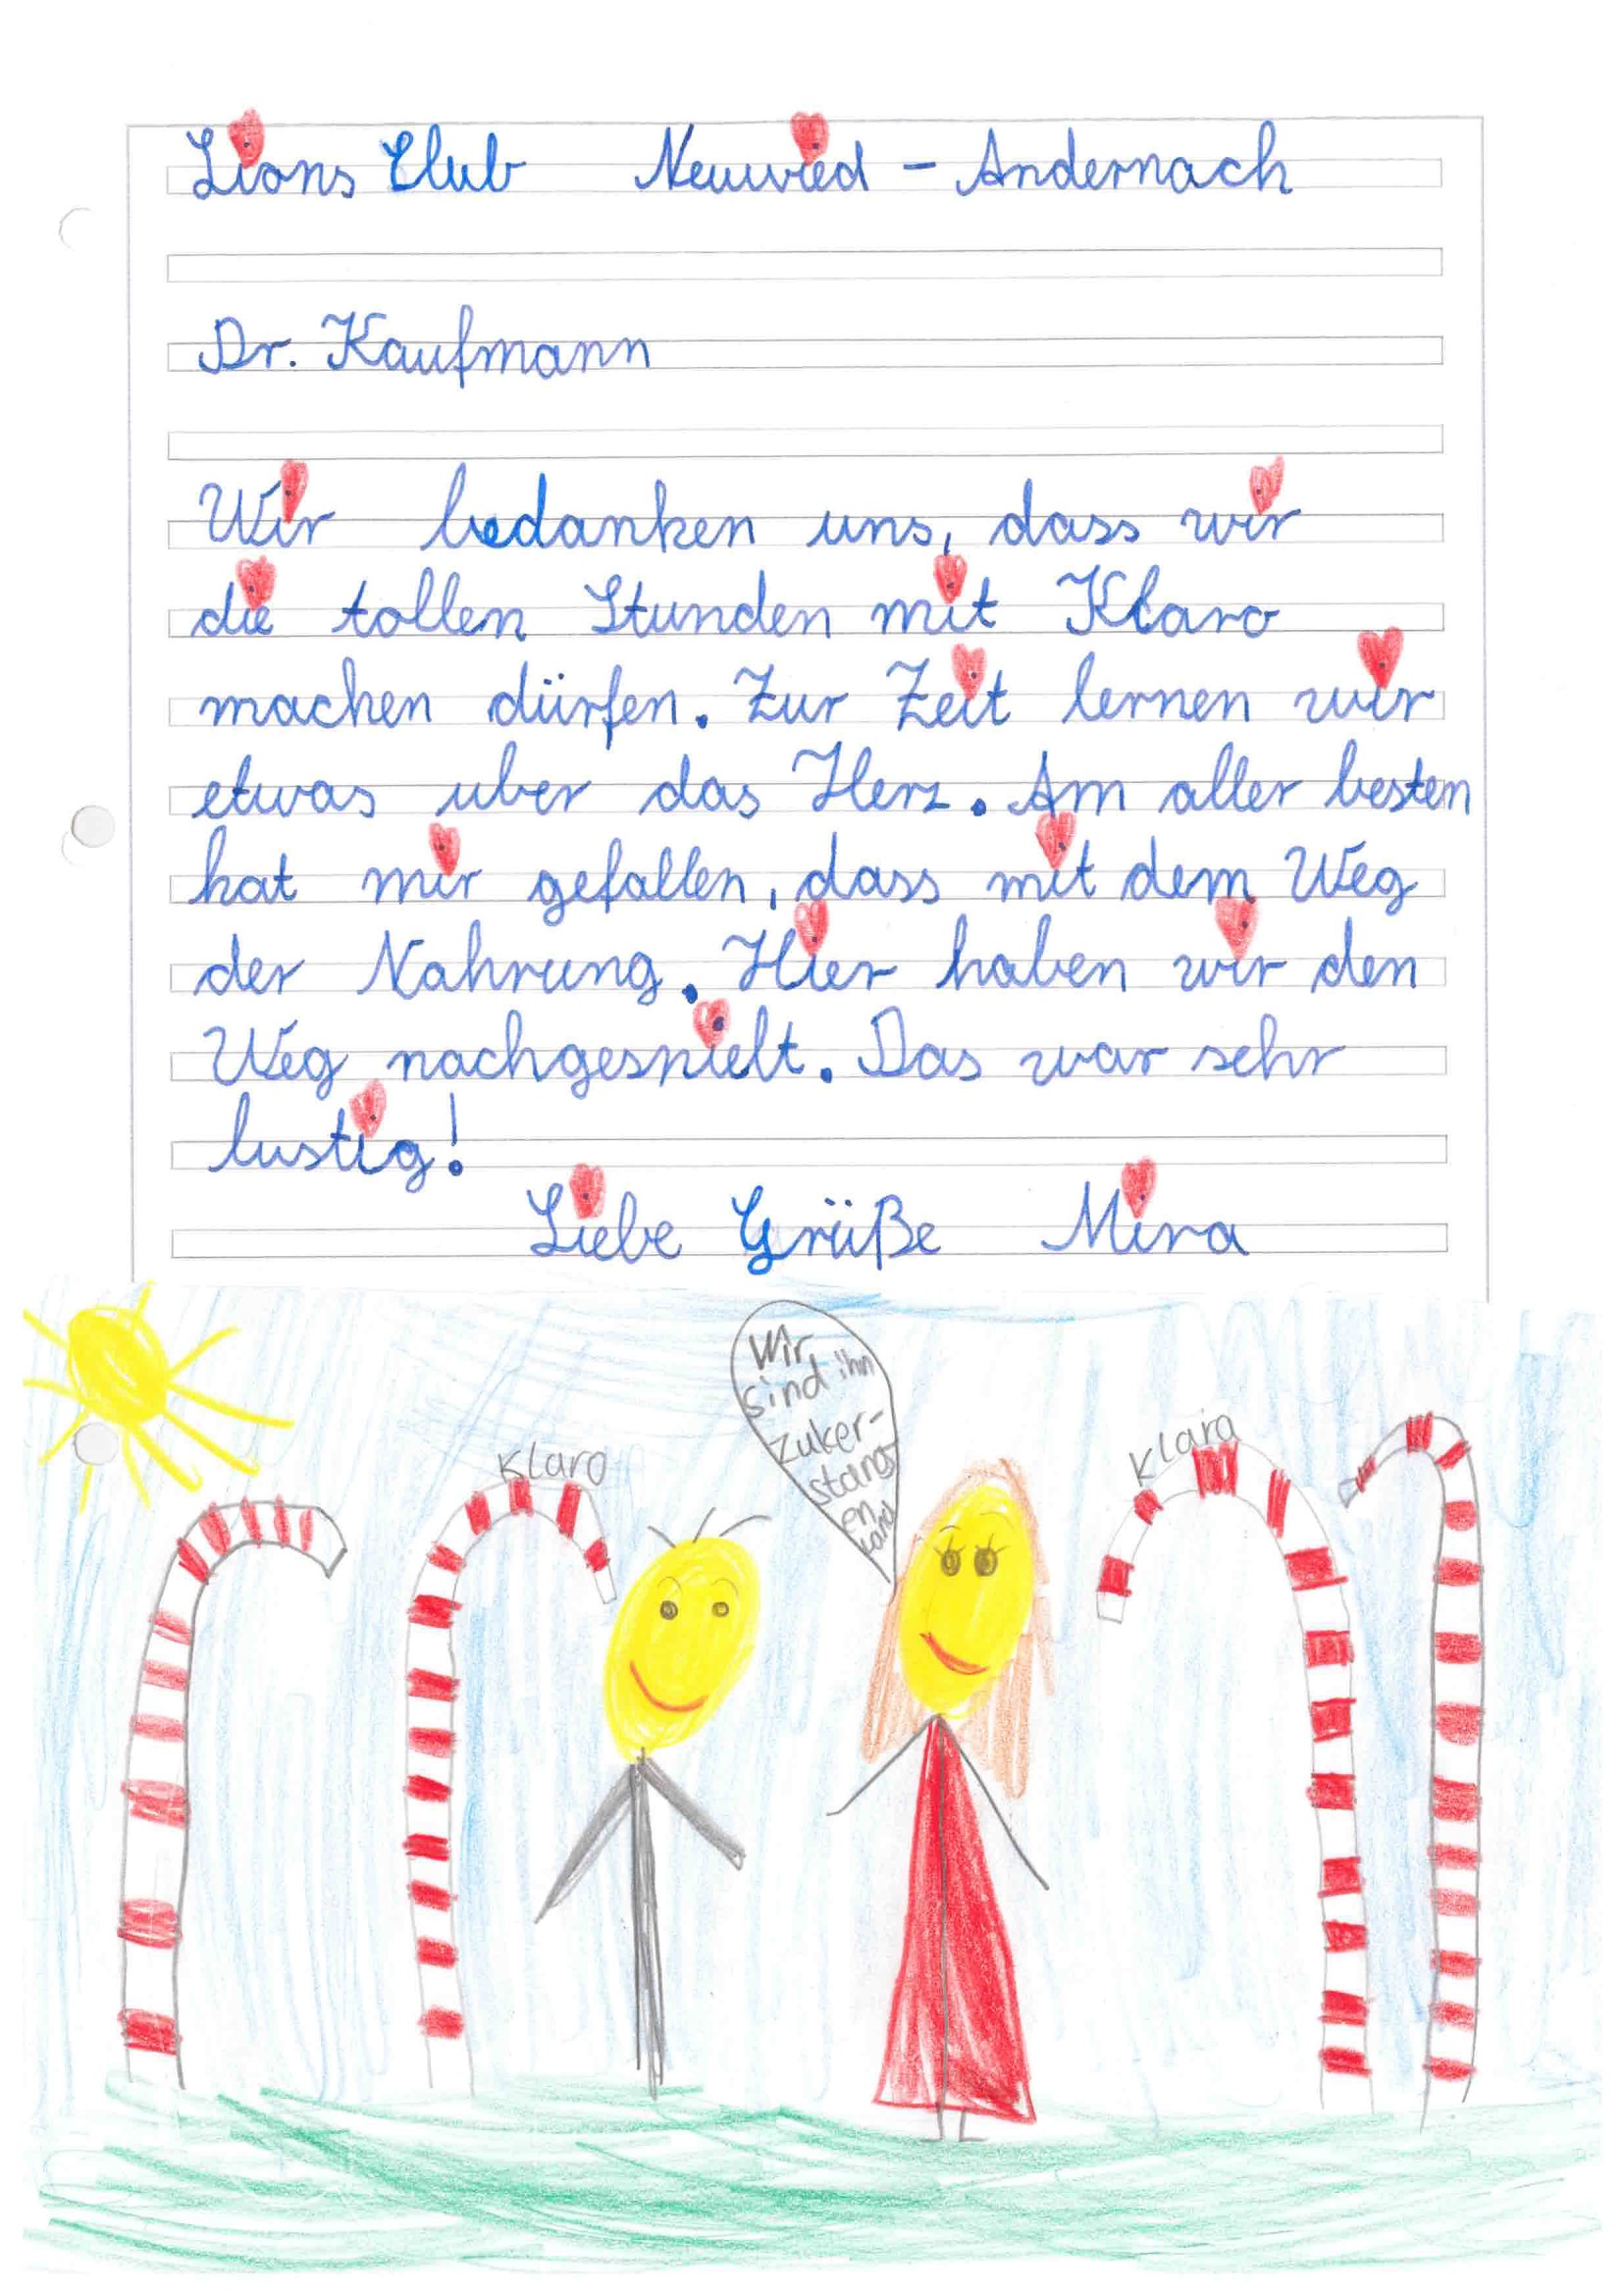 Lions Club Neuwied - Andernach
Dr. Kaufmann
Wir bedanken uns, dass wir
die tollen Stunden mit Klaro
machen dürfen. Zur Zeit lernen wir
etwas uber das Herz. Am aller besten
hat mir gefallen, dass mit dem Weg
der Nahrung. Hier haben wir den
Weg nachgespielt. Das war sehr
lustig!
Liebe Grüße Mira
Wir
sind ihn
zuker-
stang
en
land
Klaro
Klara